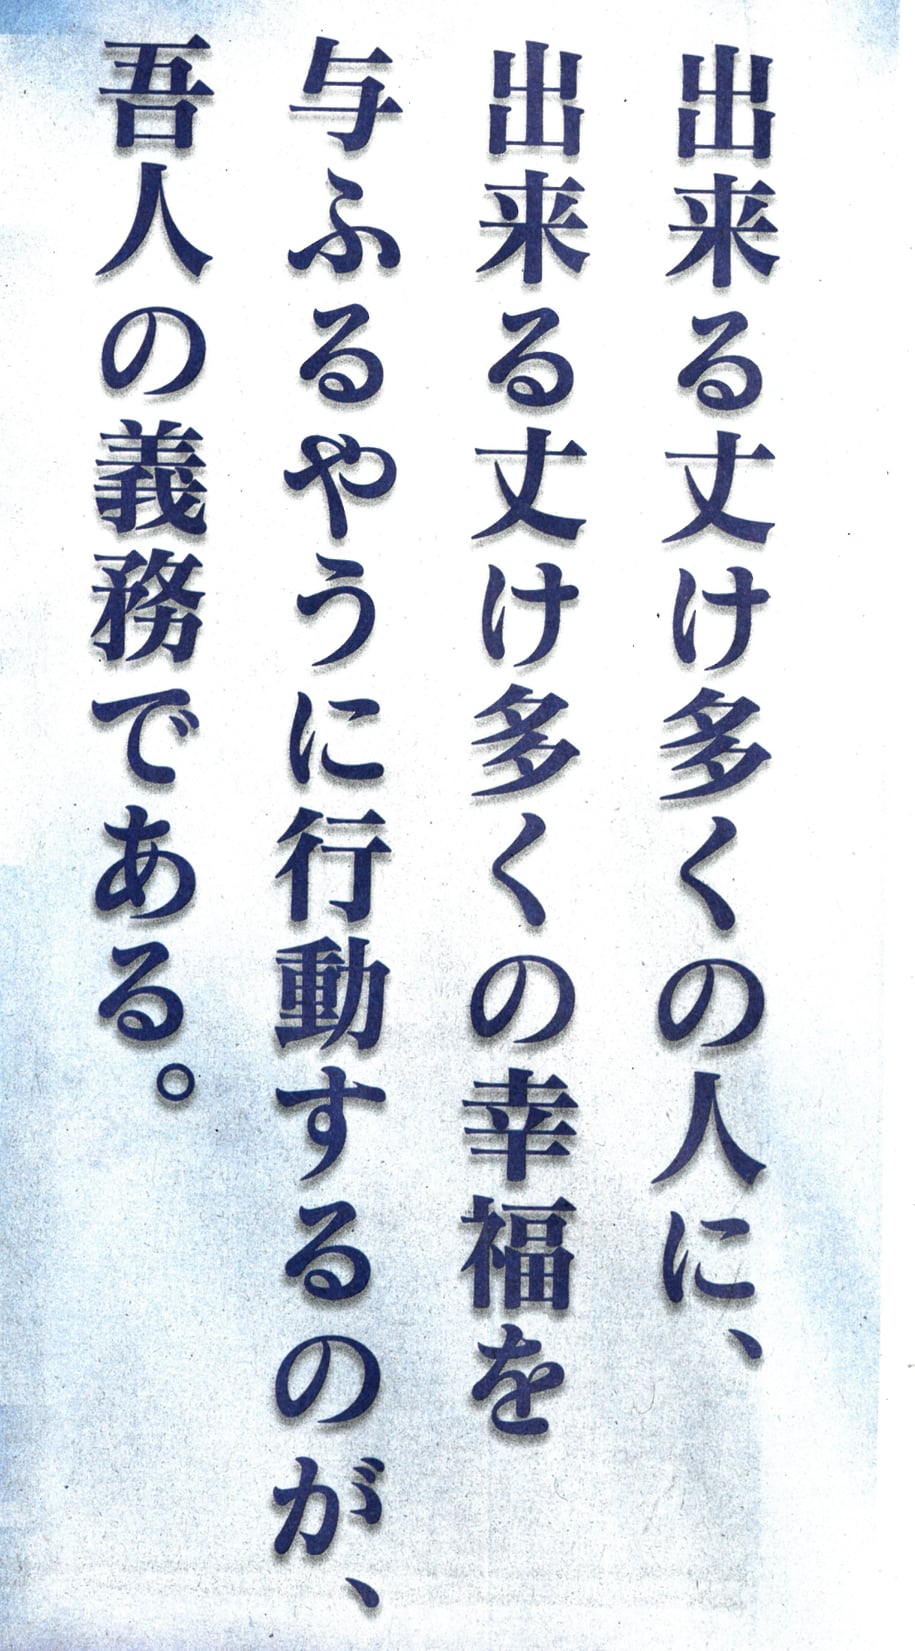 出来る丈け多くの人に、
出来る丈け多くの幸福を
与ふるやうに行動するのが、
吾人の義務である。